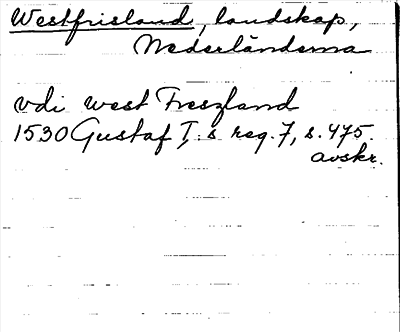 Westfriesland, landskap,
Nederländerna
vdi west Freszland
1530 Gustaf I:s reg. 7, s. 475.
avskr.